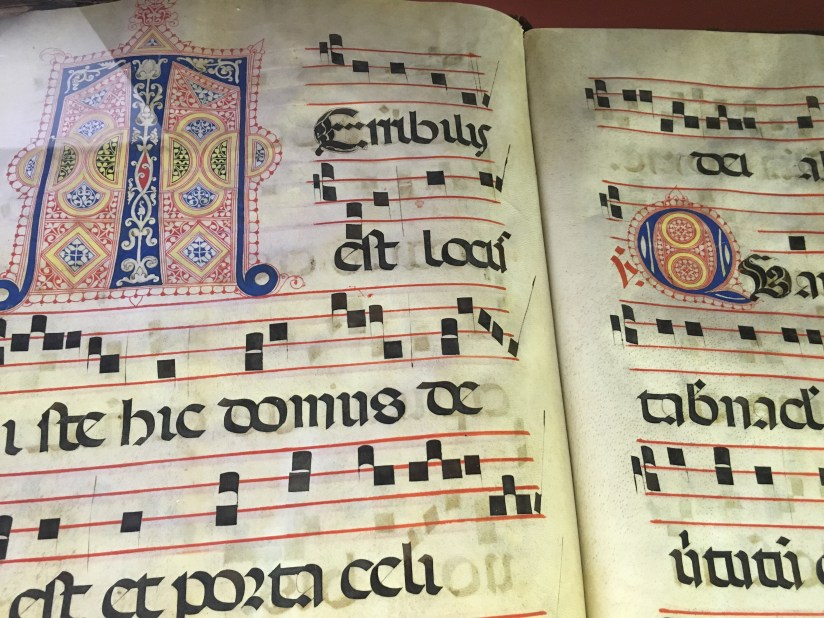 TErribilis
est locus
iste hic domus de
est et porta celi
dei
QUa
tab'nacl
v'tutū